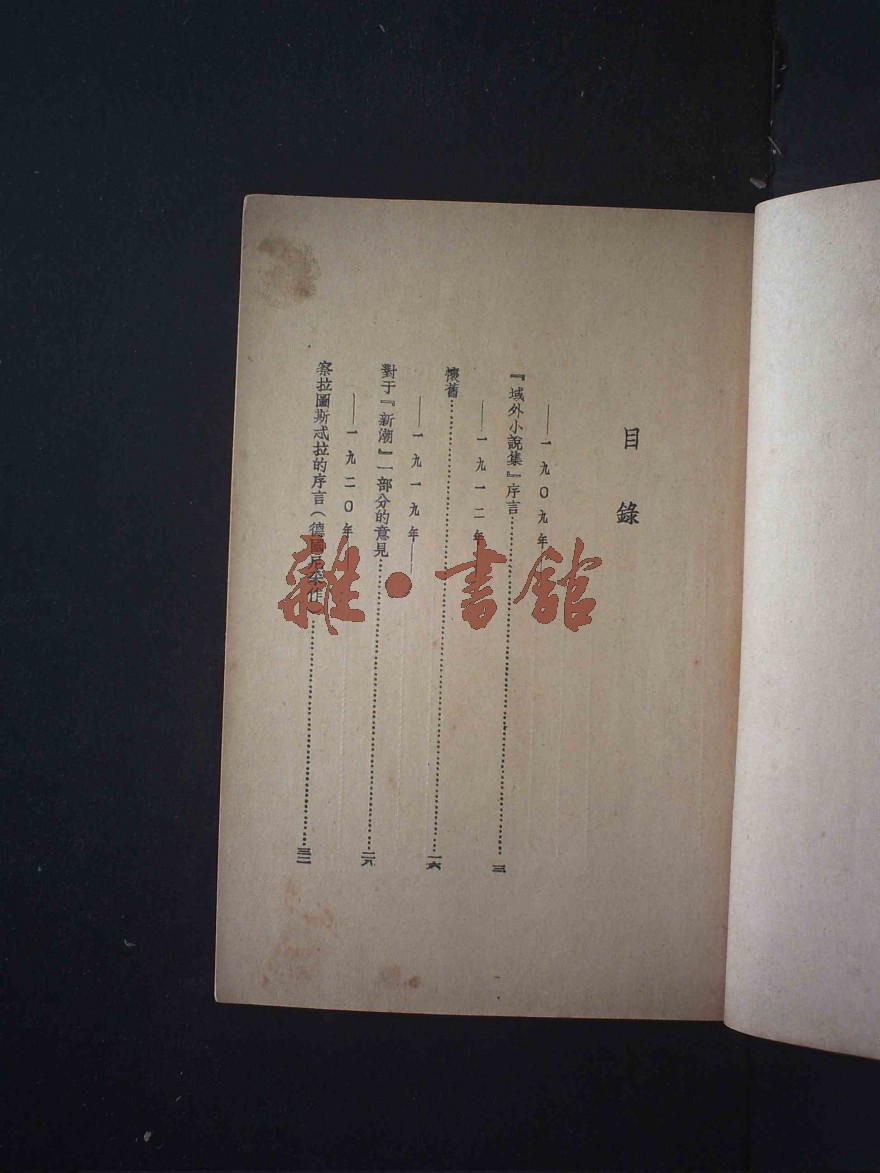 目錄
——一九〇九年
『域外小說集』序言……三
——一九一二年
懷舊……一六
——一九一九年——
對于『新潮』一部分的意見……二九
——一九二〇年
察拉圖斯忒拉的序言（德國尼采作）……三二
雜·書館